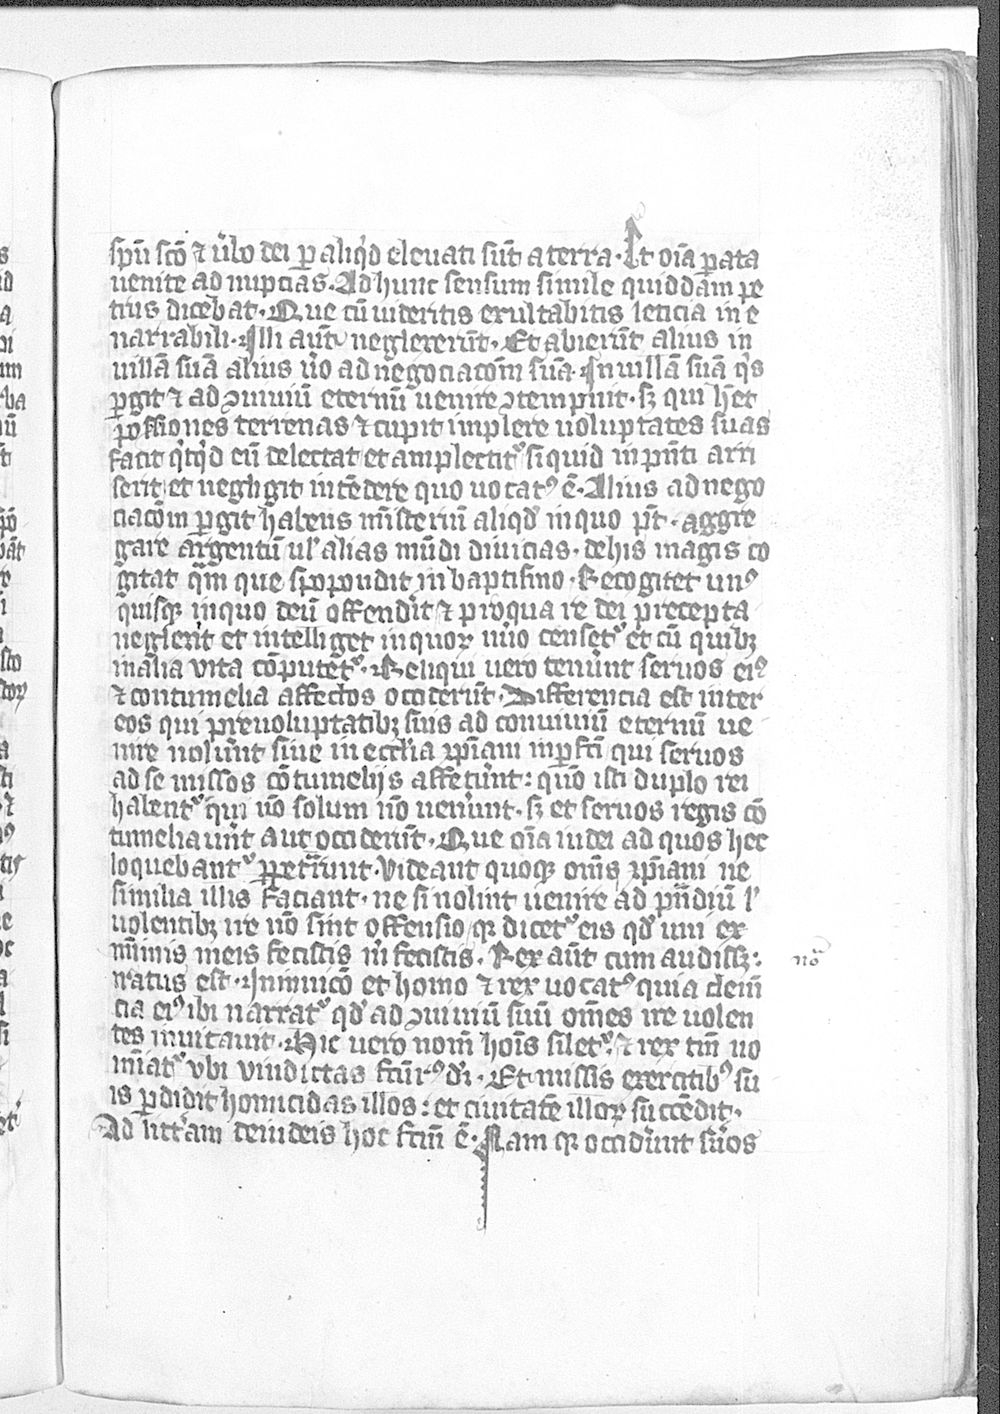 spū scō ⁊ ūbo dei p aliq͛d eleuati sūt a terra · Et oīa parata
uenite ad nupcias · Ad hunc sensum simile quiddam pe
trus dicebat · Que cū uideritis exultabitis leticia in e
narrabili · Illi aūt neglexerūt · Et abierūt alius in
uillā suā alius ūo ad negociacōm suā · In uillā suā q͛s
pgit ⁊ ad ↄuiuiū eternū uenire ↄtempnit · sꝫ qui hēt
possiones terrenas ⁊ cupit implere uoluptates suas
facit q͛cq͛d eū delectat et amplectit᷒ si quid in pn̄ti arri
serit et negligit intēdere quo uocat᷒ ē · Alius ad nego
ciacōm pgit habens mīsteriū aliqd͛ in quo pt̄ · aggre
gare argentū ul̕ alias mūdi diuicias · de his magis co
gitat qm̄ que spopondit in baptismo · Recogitet un᷒
quisqꝫ in quo deū offendīt ⁊ pro qua re dei precepta
neglexīt et intelliget in quoꝝ nūo censet᷒ et cū quibꝫ
mālia vita cōputet᷒ · Reliqui uero tenūnt seruos ei᷒
⁊ contumelia affectos occiderūt · Differencia est inter
eos qui pre uoluptatibꝫ suis ad conuiuiū eternū ue
nire nolūnt siue in ecclīa xp̄iani inpfcī qui seruos
ad se missos cōtumelijs affecūnt : quō isti duplo rei
habent᷒ qui nō solum nō uenūnt · sꝫ et seruos regis cō
tumeliauūt aut occiderūt · Que oīa iudei ad quos hec
loquebant᷒ ppetrūnt · Videant quoqꝫ om̄s xp̄iani ne
similia illis faciant · ne si nolint uenire ad pn̄diū l̕
uolentibꝫ ire nō sint offensio qꝛ dicet᷒ eis qd͛ uni ex
mīmis meis fecistis m̄ fecistis · Rex aūt cum audissꝫ :
iratus est · Inimicō et homo ⁊ rex uocat᷒ quia clemē
cia ei᷒ ibi narrat᷒ qd͛ ad ↄuiuiū suū om̄es ire uolen
tes inuitauit · Hic uero nom̄ hoīs silet᷒ · ⁊ rex tm̄ no
mīat᷒ vbi vindictas fctūr᷒ d͛r · Et missis exercitib᷒ su
is pdidit homicidas illos : et ciuitatē illoꝝ succēdit ·
Ad litt͛am de iudeis hoc fctm̄ ē · Nam qꝛ occidūnt sūos
nō